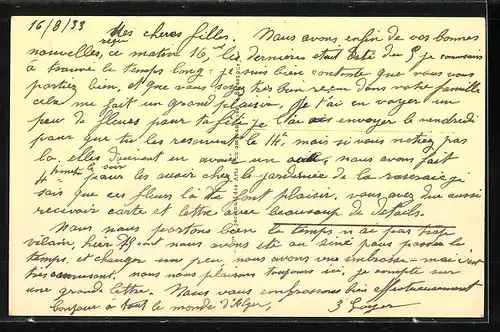 16/8/33 Mes cheres filles. Nous avons enfin de vos bonnes
reçu
nouvelles, ce matin 16, les dernieres était daté du 9 je commençais
à trouvé le temps long: je suis bien contente que vous vous
portiez bien, et que vous soyez très bien reçu dans votre famille
cela me fait un grand plaisir. Je t'ai en voyer un
peu de fleurs pour ta fête je l'ai envoyer le vendredi
pour que tu les reçoivent le 14, mais si vous n'étiez pas
la, elles doivent en avoir un, nous avons fait
4 le soir
pour les avoir chez la jardinière de la roseraie je
sais que ces fleurs la te font plaisir, vous avez du aussi
recevoir carte et lettre avec beaucoup de details.
Nous nous portons bien le temps n'ai pas trop
vilain, hier 15 août nous avons été au siné pour passer le
temps, et changer un peu, nous avons vue mais c'est
très amusant, nous nous plaisons toujours ici, je compte sur
une grande lettre. Nous vous embrassons bien affectueusement
bonjour à tout le monde d'Alger,